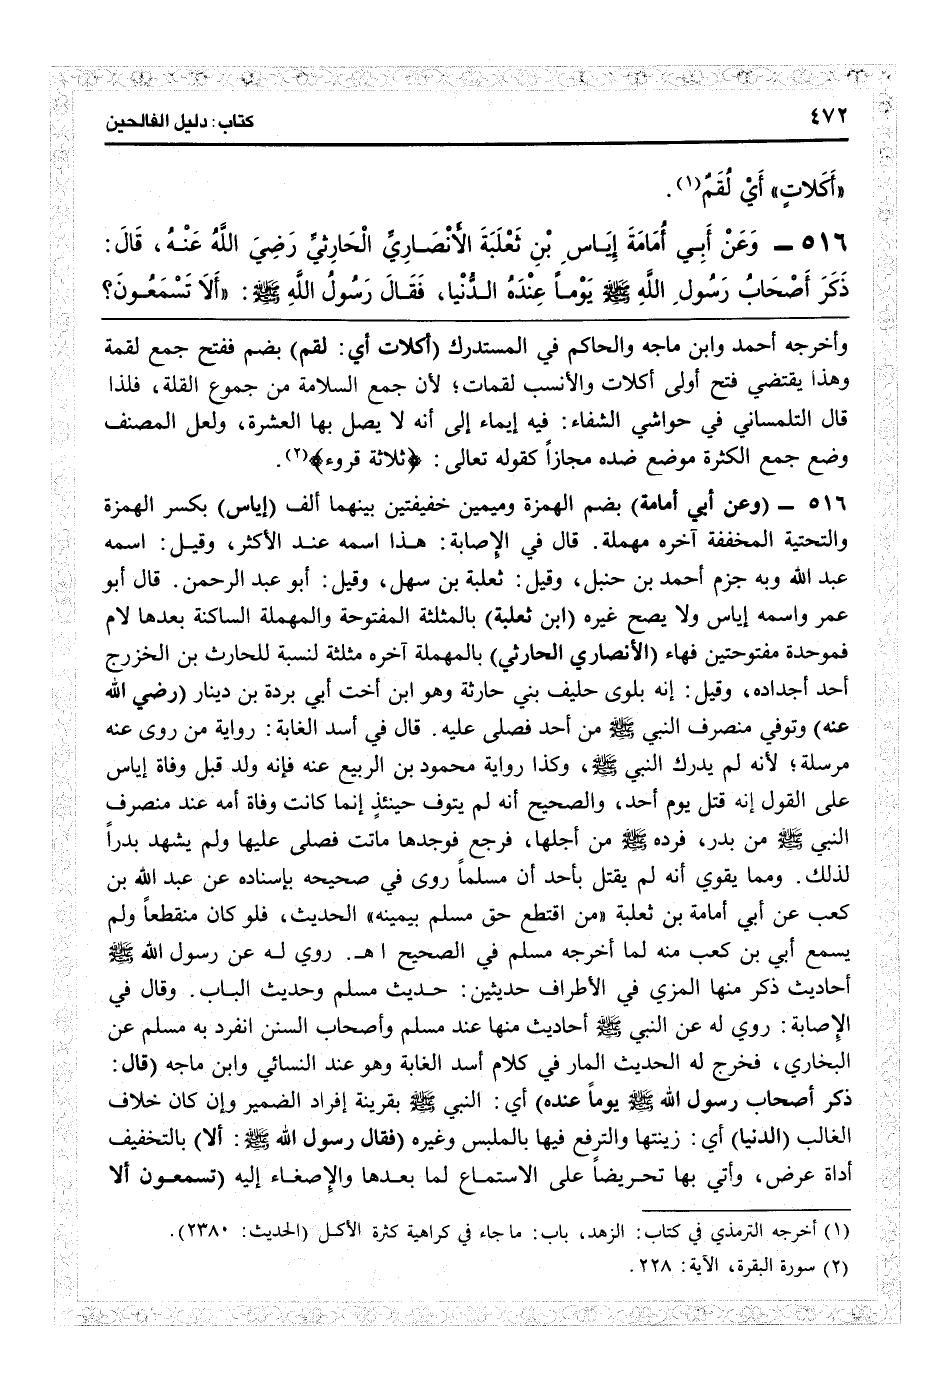 ٤٧٢
كتاب: دليل الفالحين
«أَكَلاتٍ» أَيْ لُقَمٌ(١).
٥١٦ ـ وَعَنْ أَبِي أُمَامَةَ إِيَاسِ بْنِ ثَعْلَبَةَ الْأَنْصَارِيِّ الْحَارِثِيِّ رَضِيَ اللَّهُ عَنْهُ، قَالَ:
ذَكَرَ أَصْحَابُ رَسُولِ اللَّهِ ﷺ يَوْماً عِنْدَهُ الدُّنْيا، فَقَالَ رَسُولُ اللَّهِ ﷺ: «أَلَا تَسْمَعُونَ؟
وأخرجه أحمد وابن ماجه والحاكم في المستدرك (أكلات أي: لقم) بضم ففتح جمع لقمة
وهذا يقتضي فتح أولى أكلات والأنسب لقمات؛ لأن جمع السلامة من جموع القلة، فلذا
قال التلمساني في حواشي الشفاء: فيه إيماء إلى أنه لا يصل بها العشرة، ولعل المصنف
وضع جمع الكثرة موضع ضده مجازاً كقوله تعالى: ﴿ثلاثة قروء﴾(٢).
٥١٦ ـ (وعن أبي أمامة) بضم الهمزة وميمين خفيفتين بينهما ألف (إياس) بكسر الهمزة
والتحتية المخففة آخره مهملة. قال في الإصابة: هذا اسمه عند الأكثر، وقيل: اسمه
عبد الله وبه جزم أحمد بن حنبل، وقيل: ثعلبة بن سهل، وقيل: أبو عبد الرحمن. قال أبو
عمر واسمه إياس ولا يصح غيره (ابن ثعلبة) بالمثلثة المفتوحة والمهملة الساكنة بعدها لام
فموحدة مفتوحتين فهاء (الأنصاري الحارثي) بالمهملة آخره مثلثة لنسبة للحارث بن الخزرج
أحد أجداده، وقيل: إنه بلوى حليف بني حارثة وهو ابن أخت أبي بردة بن دينار (رضي الله
عنه) وتوفي منصرف النبي ﷺ من أحد فصلى عليه. قال في أسد الغابة: رواية من روى عنه
مرسلة؛ لأنه لم يدرك النبي ﷺ، وكذا رواية محمود بن الربيع عنه فإنه ولد قبل وفاة إياس
على القول إنه قتل يوم أحد، والصحيح أنه لم يتوف حينئذٍ إنما كانت وفاة أمه عند منصرف
النبي ﷺ من بدر، فرده ﷺ من أجلها، فرجع فوجدها ماتت فصلى عليها ولم يشهد بدراً
لذلك. ومما يقوي أنه لم يقتل بأحد أن مسلماً روى في صحيحه بإسناده عن عبد الله بن
كعب عن أبي أمامة بن ثعلبة «من اقتطع حق مسلم بيمينه» الحديث، فلو كان منقطعاً ولم
يسمع أبي بن كعب منه لما أخرجه مسلم في الصحيح ا هـ. روي له عن رسول الله ﷺ
أحاديث ذكر منها المزي في الأطراف حديثين: حديث مسلم وحديث الباب. وقال في
الإصابة: روي له عن النبي ﷺ أحاديث منها عند مسلم وأصحاب السنن انفرد به مسلم عن
البخاري، فخرج له الحديث المار في كلام أسد الغابة وهو عند النسائي وابن ماجه (قال:
ذكر أصحاب رسول الله ﷺ يوماً عنده) أي: النبي ﷺ بقرينة إفراد الضمير وإن كان خلاف
الغالب (الدنيا) أي: زينتها والترفع فيها بالملبس وغيره (فقال رسول الله ﷺ: ألا) بالتخفيف
أداة عرض، وأتي بها تحريضاً على الاستماع لما بعدها والإصغاء إليه (تسمعون ألا
(١) أخرجه الترمذي في كتاب: الزهد، باب: ما جاء في كراهية كثرة الأكل (الحديث: ٢٣٨٠).
(٢) سورة البقرة، الآية: ٢٢٨.